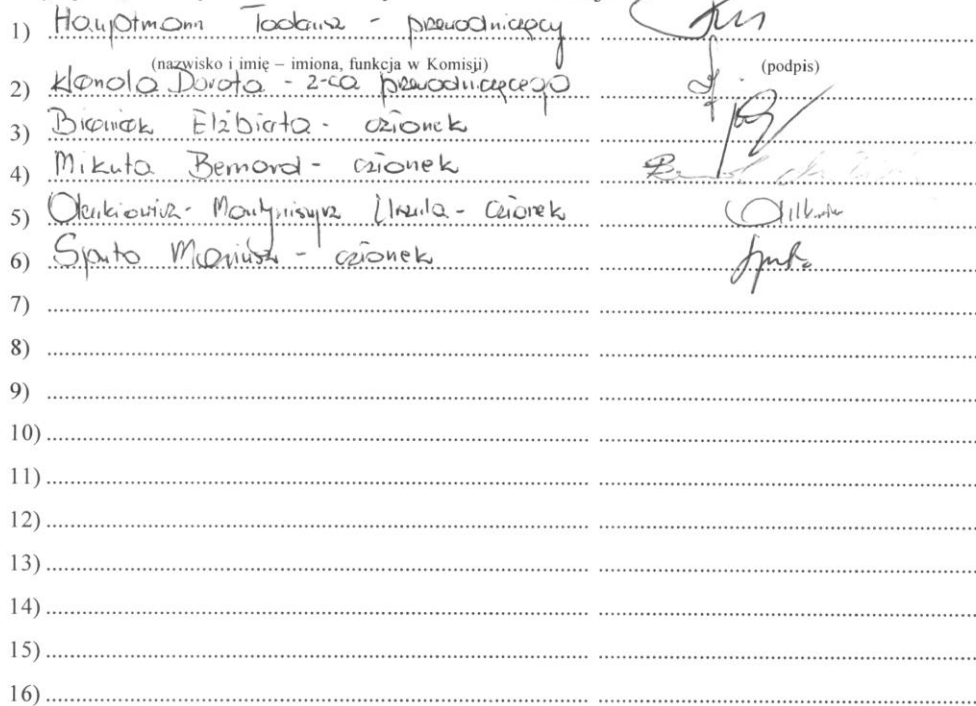 1) Hauptmann Tadeusz - przewodniczący
(nazwisko i imię – imiona, funkcja w Komisji) (podpis)
2) Klonola Dorota - z-ca przewodniczącego
3) Bieniek Elżbieta - członek
4) Mikuta Bernard - członek
5) Urszula - członek
6) Sputo Mariusz - członek
7)
8)
9)
10)
11)
12)
13)
14)
15)
16)